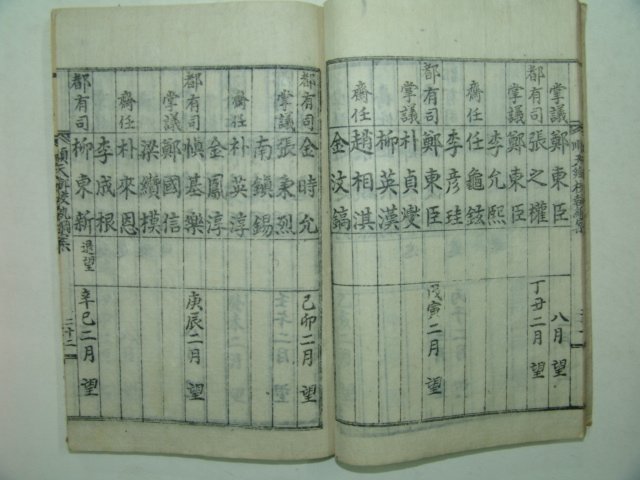 掌議 鄭東臣 八月 望
都有司 張之權 丁丑二月 望
掌議 鄭東臣
李允熙
齋任 任龜鉉
李彦珪
都有司 鄭東臣 戊寅二月 望
掌議 朴貞燮
柳英漢
齋任 趙相淇
金汶鎬
都有司 金時允 己卯二月 望
掌議 張秉烈
南鎭錫
齋任 朴英淳
金鳳淳
都有司 愼基樂 庚辰二月 望
掌議 鄭國信
梁纘模
齋任 朴來恩
李成根
都有司 柳東新 退望 辛巳二月 望
二十二